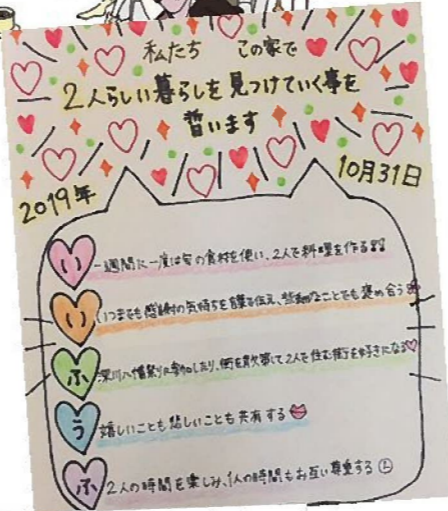 私たち この家で
2人らしい暮らしを見つけていく事を
誓います
2019年 10月31日
い 一週間に一度は旬の食材を使い、2人で料理を作る!!
い いつまでも感謝の気持ちを言葉で伝え、なことでも褒め合う
ふ 深川八幡祭りに参加したり、街を散歩して2人で住む街を好きになる♡
う 嬉しいことも悲しいことも共有する
ふ 2人の時間を楽しみ、1人の時間もお互い尊重する